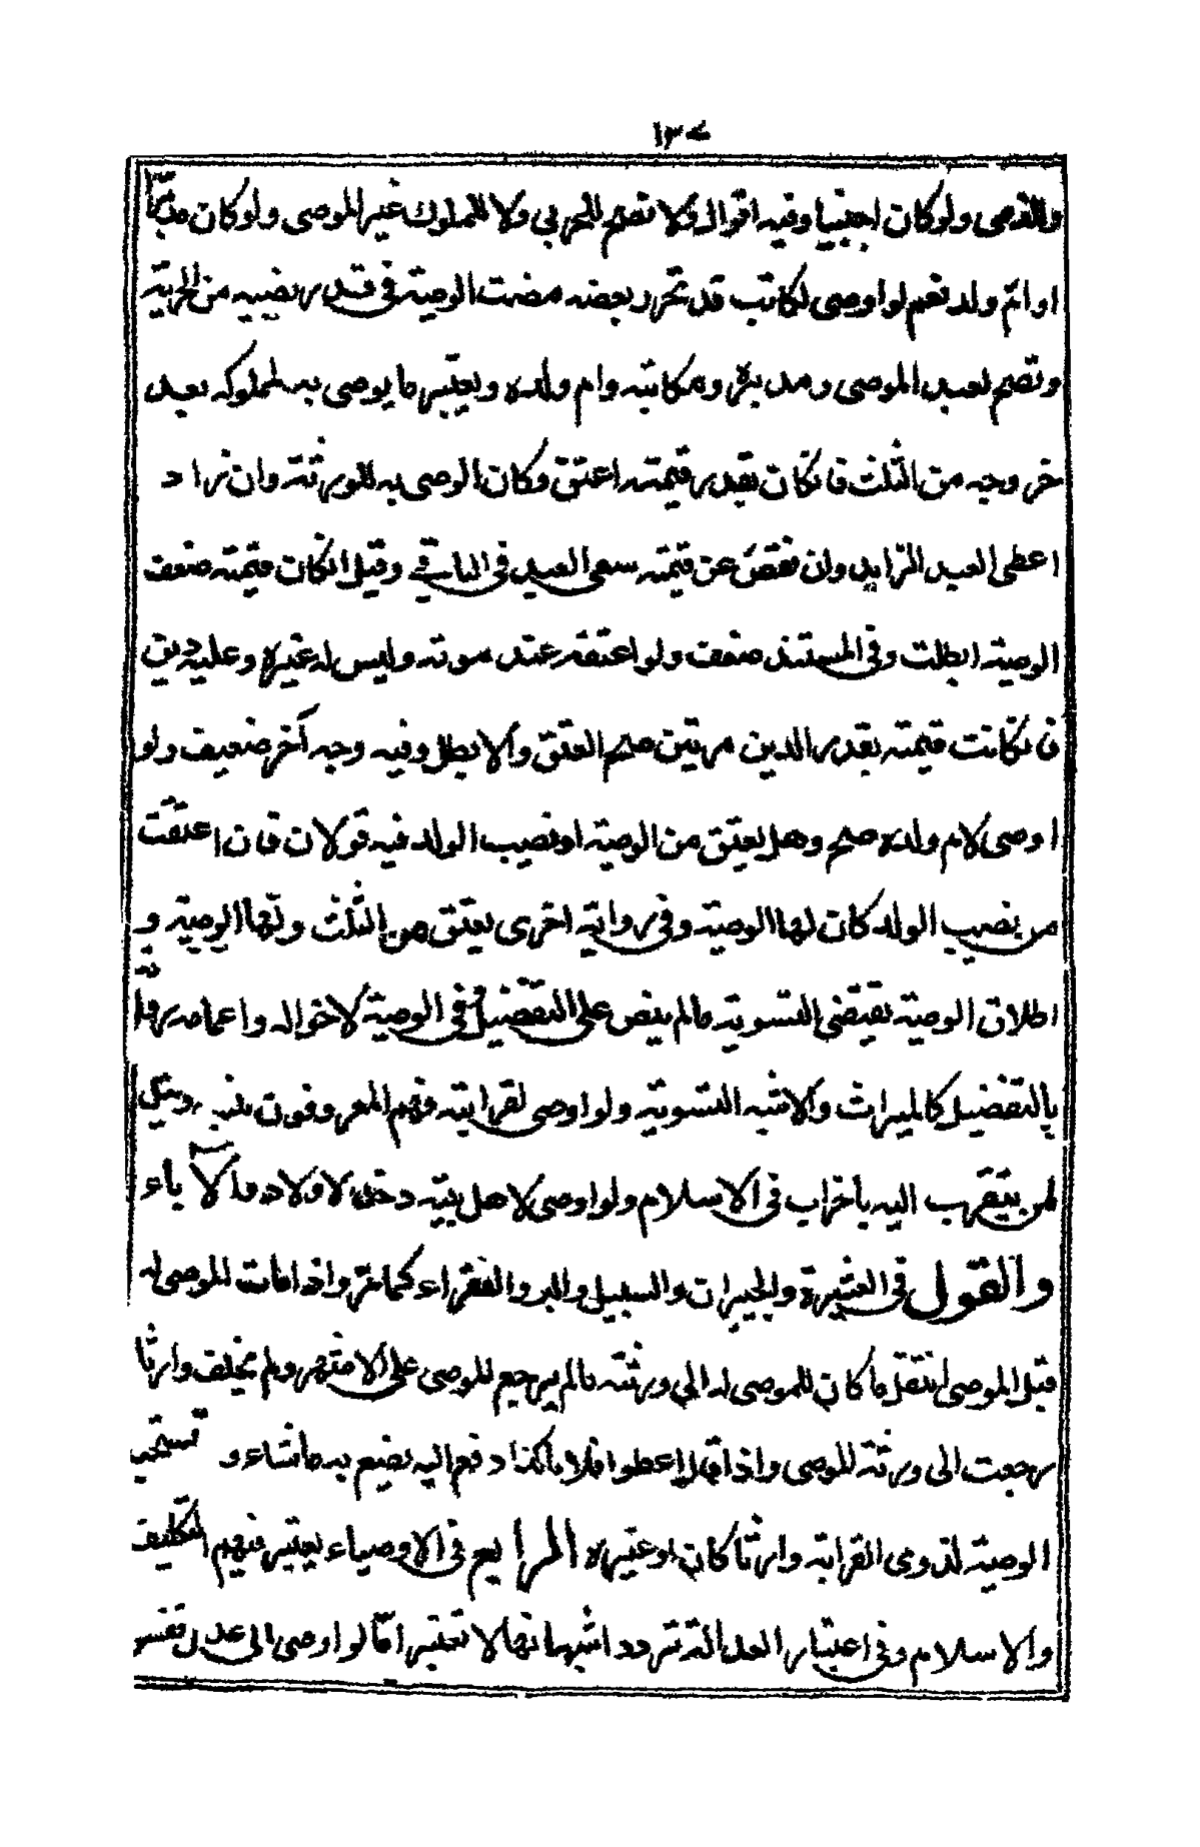 ١٣٧
وللذمى ولو كان اجنبيا وفيه اقوال ولا تصح للحربى ولا للمملوك غير الموصى ولو كان مدبّرا
او امّ ولد نعم لو اوصى لمكاتب قد تحرر بعضه مضت الوصية فى قدر نصيبه من الحرية
وتصح لعبد الموصى ومدبره ومكاتبه وام ولده ويعتبر ما يوصى به لمملوكه بعد
خروجه من الثلث فانكان بقدر قيمته اعتق وكان الوصى به للورثة وان زاد
اعطى العبد الزايد وان نقص عن قيمته سعى العبد فى الباقى وقيل انكان قيمته ضعف
الوصية ابطلت وفى المستند ضعف ولو اعتقه عند موته وليس له غيره وعليه دين
فانكانت قيمته بقدر الدين مرتين صح العتق والا بطل وفيه وجه آخر ضعيف ولو
اوصى لام ولده صح وهل يعتق من الوصية او نصيب الولد فيه قولان فان اعتقت
من نصيب الولد كان لها الوصية وفى رواية اخرى يعتق من الثلث ولها الوصية و
اطلاق الوصية تقيتضى التسوية مالم ينص على التفضيل وفى الوصية لاخواله واعمامه رواية
بالتفضيل كالميراث والاشبه التسوية ولو اوصى لقرابته فهم المعروفون بنسبه وقيل
لمن يتقرب اليه بآخر اب فى الاسلام ولو اوصى لاهل بيته دخل الاولاد والآباء
والقول فى العشيرة والجيران والسبيل والبر والفقراء كما مرّ واذا مات الموصى له
قبل الموصى انتقل ما كان للموصى له الى ورثته مالم يرجع الموصى على الاشهر ولو لم يخلف وارثا
رجعت الى ورثة الموصى واذا قال اعطوا فلانا كذا دفع اليه يضع به ما شاء و تستحب
الوصية لذوى القرابة وارثا كان او غيره الرابع فى الاوصياء يعتبر فيهم التكليف
والاسلام وفى اعتبار العدالة تردد اشبهها انها لا تعتبر امّا لو اوصى الى عدل ففسق